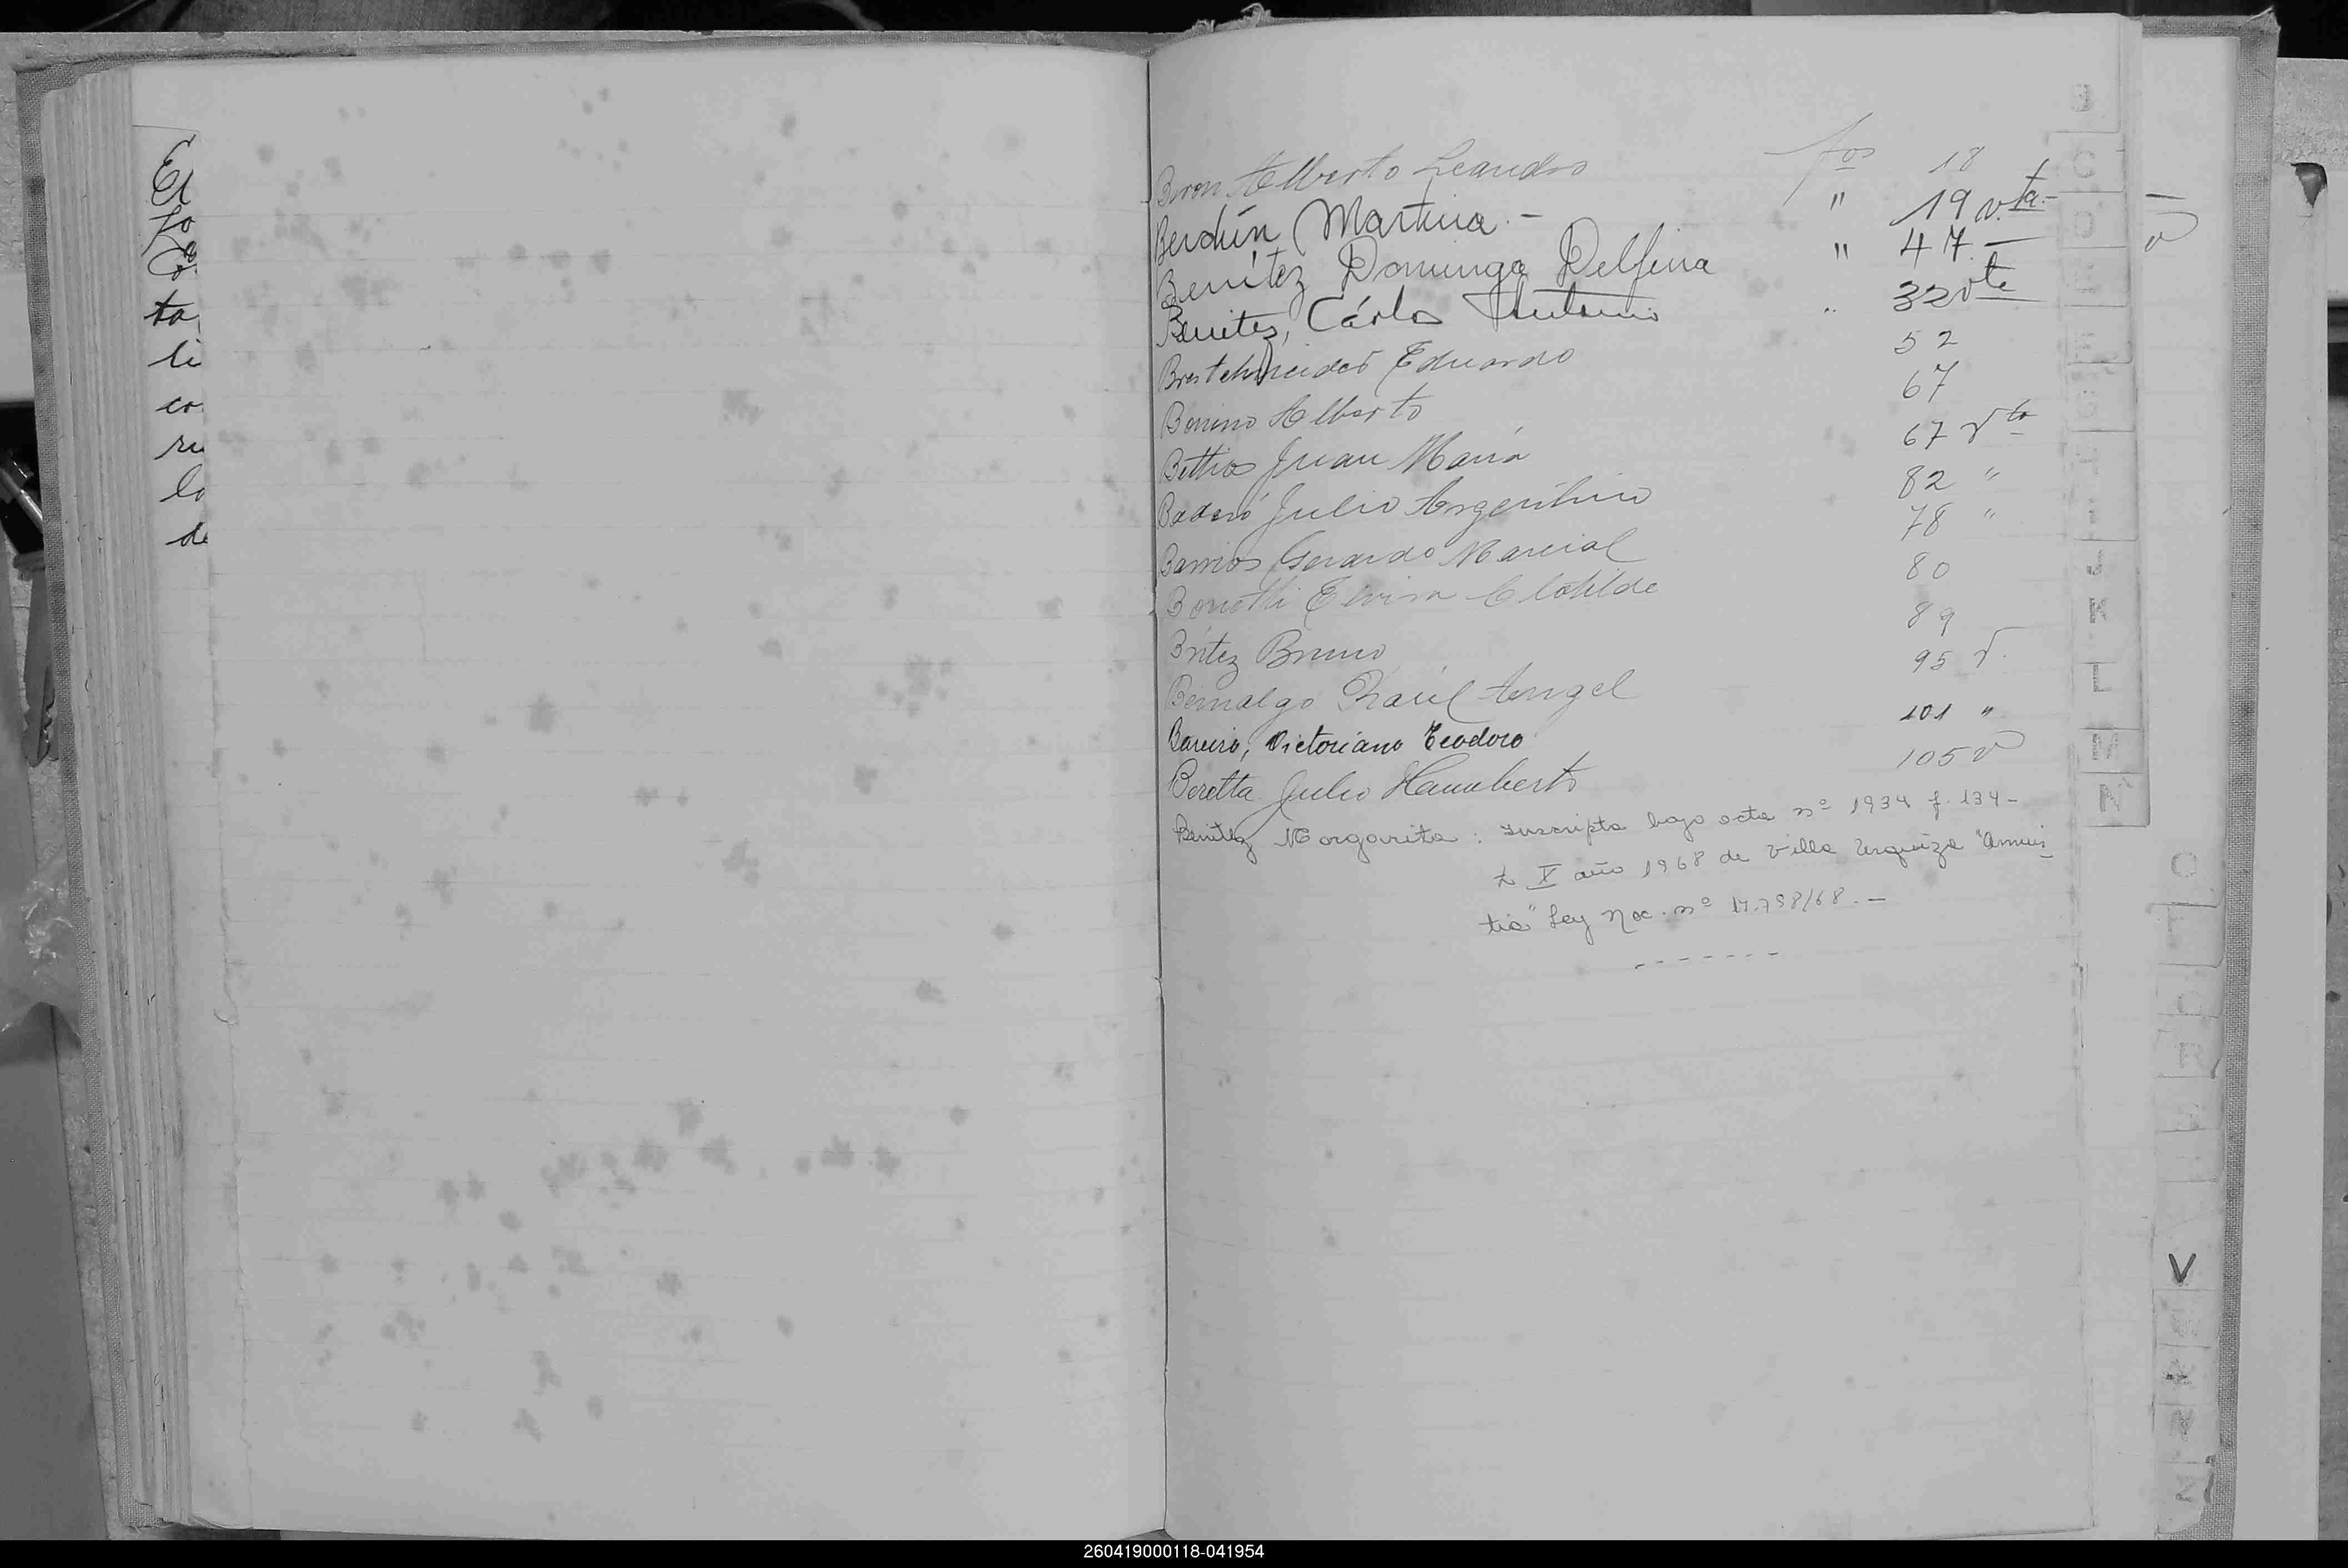 El
ta
li
co
ru
la
de
Beron Alberto Leandro fos 18
Berdún Martina.- " 19 vta.-
Benítez Dominga Delfina " 47.-
Benites, Cárlos Antonio .. 32 vta
Bretchneider Eduardo 52
Bonino Alberto 67
Juan María 67 vta
Julio Argentino 82 "
Barrios Gerardo Marcial 78 "
Bonetti Elvira Clotilde 80
Brítez Bruno 89
Bernalgo Raúl Angel 95 v.
Bareiro, Victoriano Teodoro 101 "
Beretta Julio Humberto 105 v
Benítez Margarita: Inscripta bajo acta nº 1934 f. 134-
t. X año 1968 de Villa Urquiza "Amnis
tía" Ley Nac. nº 17.798/68.-
- - - - - - -
C
D
I
J
K
L
M
N
O
Q
R
V
Z
260419000118-041954